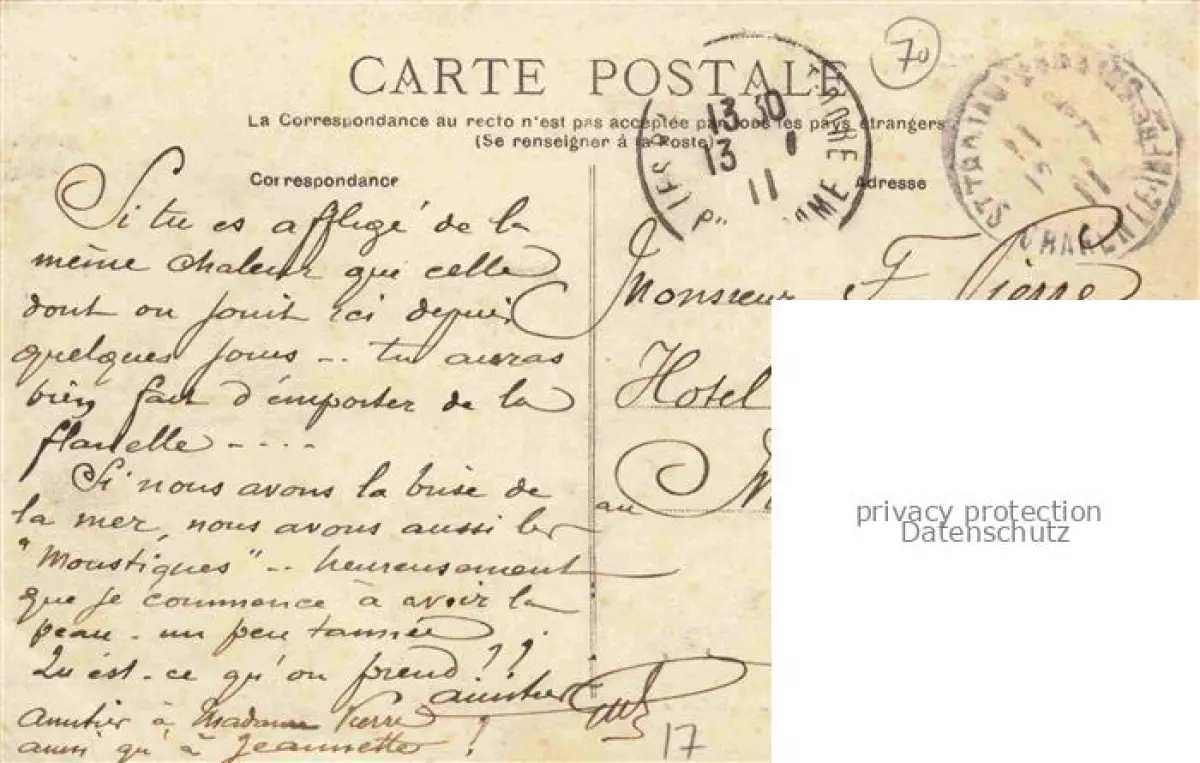 70
CARTE POSTALE
La Correspondance au recto n'est pas acceptée par tous les pays étrangers
(Se renseigner à la Poste)
Correspondance
Si tu es affligé de la
même chaleur que celle
dont on jouit ici depuis
quelques jours -- tu auras
bien fait d'emporter de la
flanelle - - - -
Si nous avons la brise de
la mer, nous avons aussi les
"Moustiques" -- heureusement
que je commence à avoir la
peau - un peu tannée
Qu'est-ce qu'on prend!!
amitiés
Amitiés à Madame Pierre
ainsi qu'à Jeannette !
Adresse
Monsieur F. Pierre
Hotel
au
17
13 30
13 8
11
DOME
CHARENTE-INFRE
privacy protection
Datenschutz